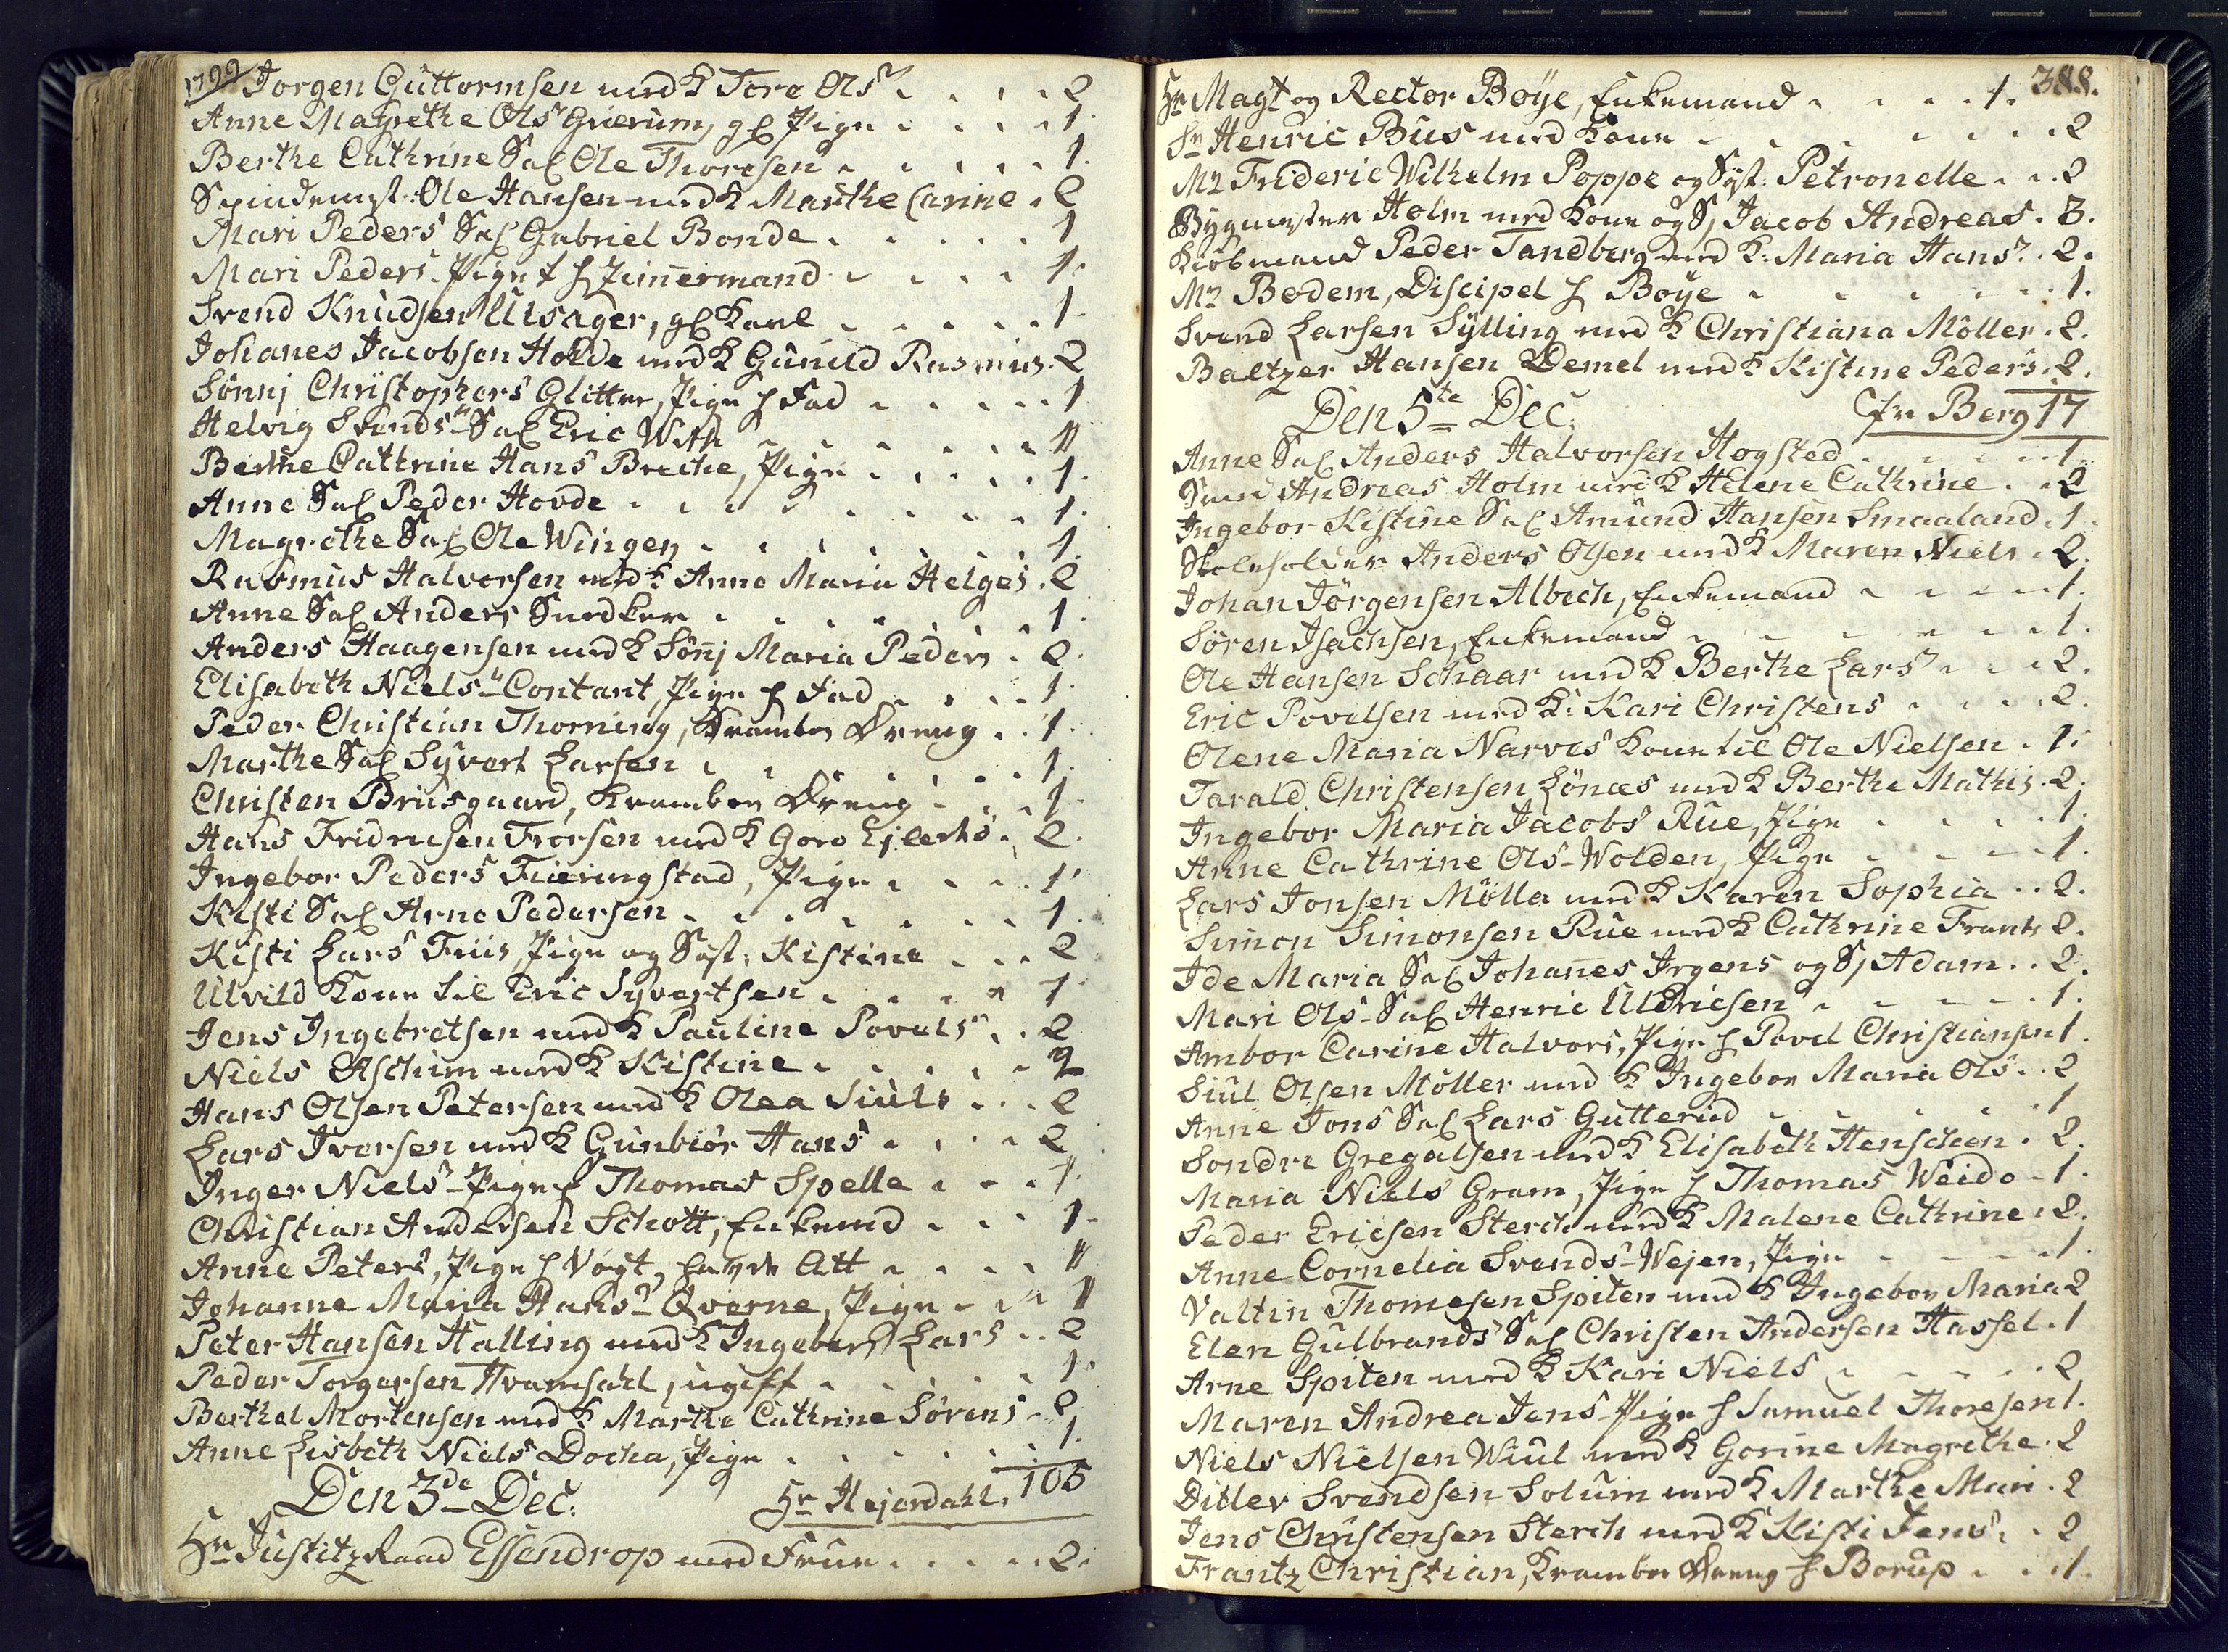 1799 Jorgen Guttormsen med K Tore Ols . . . . 2
Anne Magrethe Ols Gruerum, gl Pige . . . . 1.
Berthe Cathrine Sal Ole Thoresen . . . . . 1.
Ole Hansen med K Marthe Carine . 2
Mari Peders Sal Gabriel Bonde . . . . . 1
Mari Peders Pige f H Zimermand . . . . 1.
Svend Knudsen Ulsager, gl Karl . . . . . 1.
Johanes Jacobsen Holde med K Gunild Rasmus . 2
Sønnj Christophers Glitter, Pige h Fad . . . . . 1
Helvig Svends Sal Eric With . . . . . . 1
Berthe Cathrine Hans Breche, Pige . . . . . 1.
Anne Sal Peder Hovde . . . . . . . . 1.
Magrethe Sal Ole Wingen . . . . . . . 1.
Rasmus Halvorsen med K Anne Maria Helges . 2
Anne Sal Anders Snedker . . . . . . . 1.
Anders Haagensen med K Sønj Maria Peders . 2.
Elisabeth Niels Contant, Pige h Fad . . . . 1.
Peder Christian Thorning, Krambo Dreng . . 1.
Marthe Sal Syvert Larsen . . . . . . . 1.
Christen Brusgaard, Krambo Dreng . . . 1
Hans Fridricsen Frorsen med K Goro Ejlerts . 2.
Ingebor Peders Fieringstad, Pige . . . . 1.
Kisti Sal Arne Pedersen . . . . . . . 1.
Kisti Lars Friis, Pige og Søst: Kistine . . . 2
Ulvild Kone til Eric Syvertsen . . . . 1
Jens Ingebretsen med K Pauline Povels . . 2
Niels Aschim med K Kistine . . . . . 2
Hans Olsen Petersen med K Olea Siuls . . . 2
Lars Iversen med K Gunbiør Hans . . . . 2
Inger Niels Pige h Thomas Spelle . . . 1.
Christian Andersen Schøtt, Enkemd . . . 1.
Anne Peters, Pige h Vogt, Att . . . . 1
Johanne Maria Hans Qverne, Pige . . . 1
Peter Hansen Halling med K Ingeborg Lars . . 2
Peder Torgersen Hvamsahl, ugift . . . . . 1.
Berthel Mortensen med K Marthe Cathrine Sørens . 2
Anne Lisbeth Niels Docka, Pige . . . . . . 1.
Den 3de Dec: Hr Hejerdahl. 105
Hr Justitz Raad Essendrop med Frue . . . . . 2.
388.
Hr Magt og Rector Boye, Enkemand . . . . 1.
Sr Henric Bus med Kone . . . . . . . 2
Mr Frideric Wilhelm Poppe og Søst: Petronelle . . 2
Bygmester Holm med Kone og S Jacob Andreas . 3.
Kiøbmand Peder Tandberg med K: Maria Hans . 2.
Mr Bodem, Discipel h Boye . . . . . . 1.
Svend Larsen Sylling med K Christiana Møller . 2.
Baltzer Hansen Demel med K Kistine Peders . 2.
Den 5te Dec: Cfr Berg 17
Anne Sal Anders Halvorsen Hogsted . . . . 1.
Andreas Holm med K Helene Cathrine . . 2
Ingebor Kistine Sal Amund Hansen Smaaland . 1.
Skoleholder Anders Olsen med K Maren Niels . 2.
Johan Jørgensen Albech, Enkemand . . . . 1.
Søren Isachsen, Enkemand . . . . . . . 1.
Ole Hansen Schaar med K Berthe Lars . . . 2.
Eric Povelsen med K: Kari Christens . . . . 2.
Olene Maria Narves Kone til Ole Nielsen . 1.
Tarald Christensen Lønæs med K Berthe Mathis . 2.
Ingebor Maria Jacobs Rue, Pige . . . . . 1.
Anne Cathrine Ols Wolden, Pige . . . . . 1.
Lars Jonsen Mølla med K Karen Sophia . . 2.
Simon Simonsen Rue med K Cathrine Frants 2.
Ide Maria Sal Johanes Irgens og S Adam . . 2.
Mari Ols Sal Henric Uldricsen . . . . . 1.
Ambor Carine Halvors, Pige h Povel Christiansen 1.
Siul Olsen Møller med K Ingebor Maria Ols . . 2
Anne Jons Sal Lars Gutterud . . . . . 1
Sondre Gregalsen med K Elisabeth Henschen . 2.
Maria Niels Gram, Pige h Thomas Weido - 1.
Peder Ericsen Sterch med K Malene Cathrine . 2.
Anne Cornelia Svends Wejen, Pige . . . . . 1.
Valtin Thomesen Spiten med K Ingebor Maria 2
Elen Gulbrands Sal Christen Andersen Hassel . 1
Arne Spiten med K Kari Niels . . . . . 2
Maren Andrea Jens Pige h Samuel Thoresen 1.
Niels Nielsen Wiul med K Gorine Magrethe . 2
Ditlev Svendsen Solum med K Marthe Mari . 2
Jens Christensen Sterch med K Kisti Jens . . 2
Frantz Christian, Krambo Dreng h Borup . . . 1.